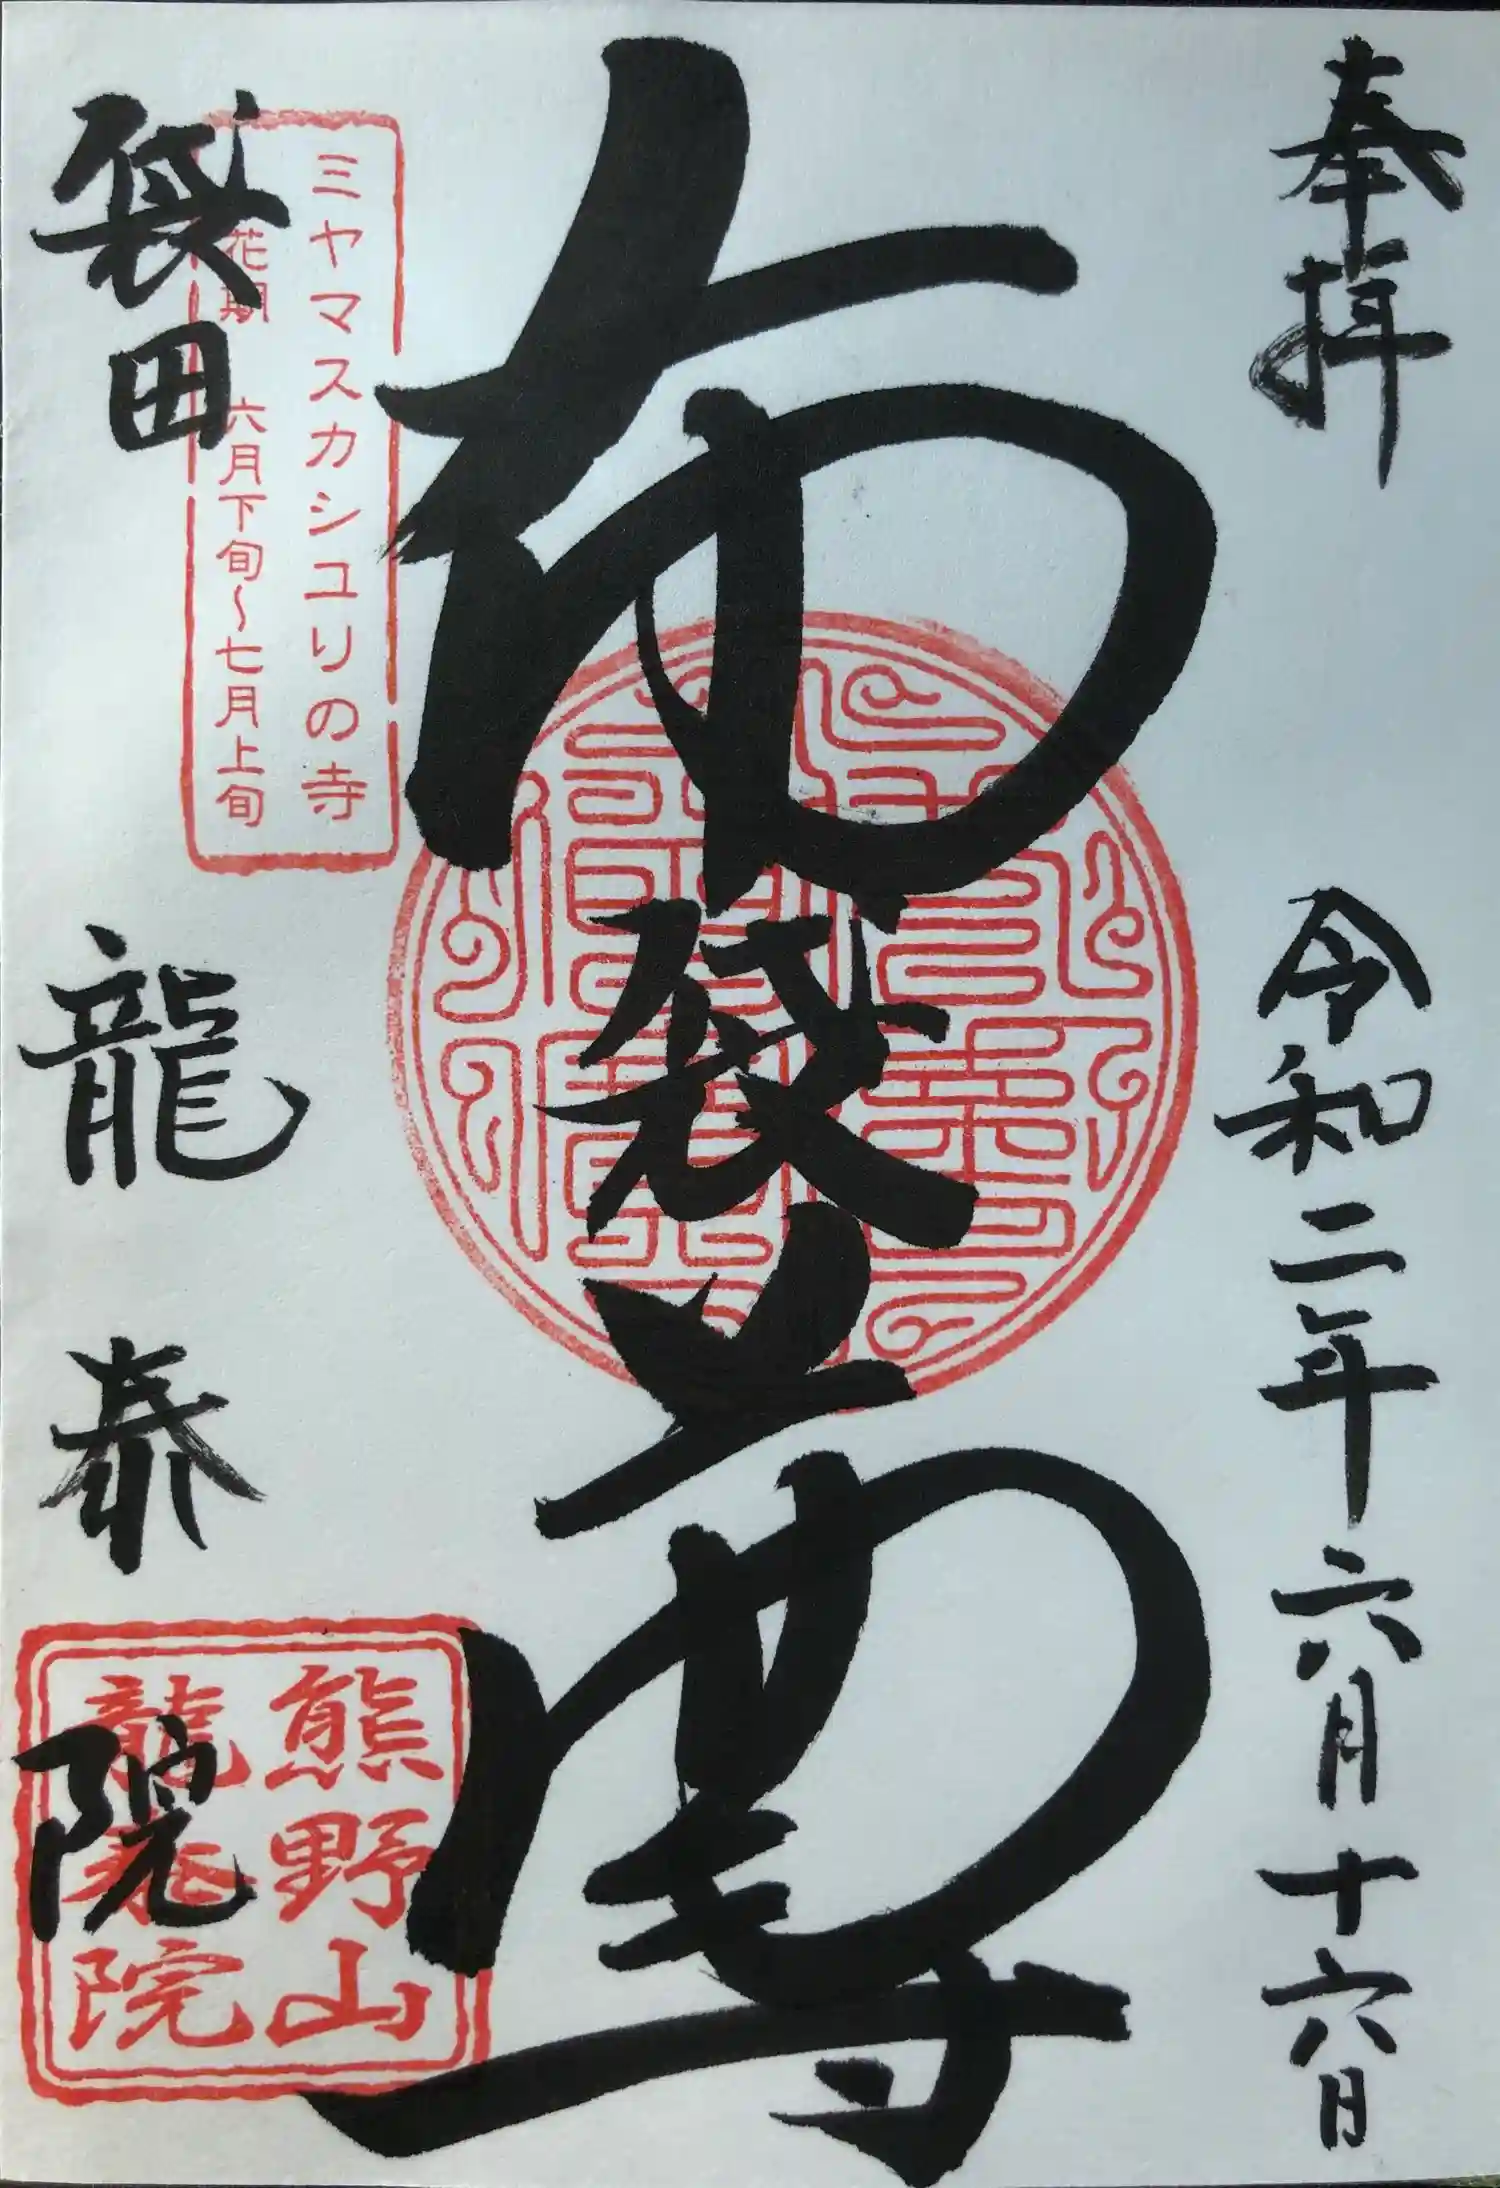 奉拝
令和二年六月十六日
布袋尊
ミヤマスカシユリの寺
花期 六月下旬〜七月上旬
袋田 龍泰院
熊野山
龍泰院